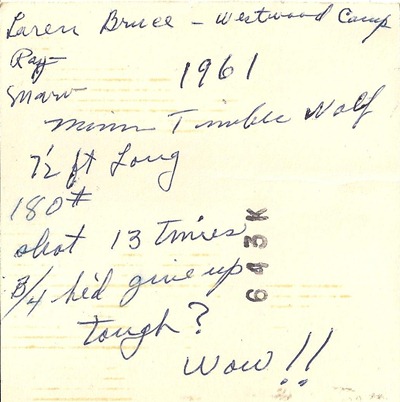 Laren Bruce - Westwood Camp
Ray
Marv
1961
Minn Timble Wolf
7½ ft Long
180#
shot 13 Times
3/4 he'd give up
tough?
Wow!!
643K